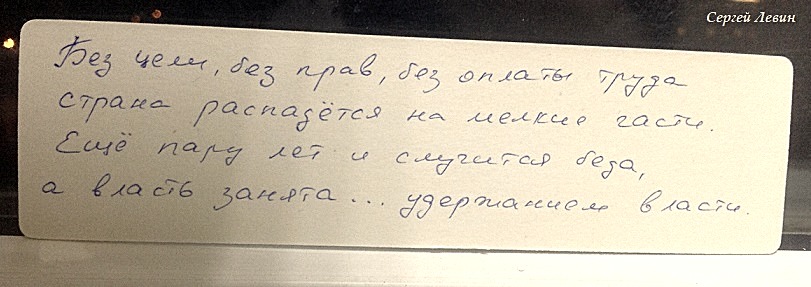 Сергей Левин
Без цели, без прав, без оплаты труда
страна распадётся на мелкие части.
Ещё пару лет и случится беда,
а власть занята... удержанием власти.